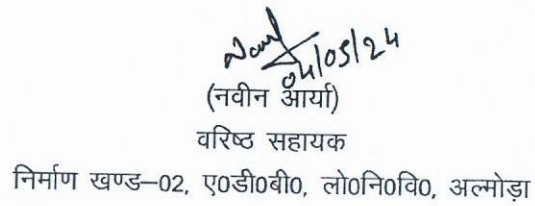 04/05/24
(नवीन आर्या)
वरिष्ठ सहायक
निर्माण खण्ड–02, ए0डी0बी0, लो0नि0वि0, अल्मोड़ा